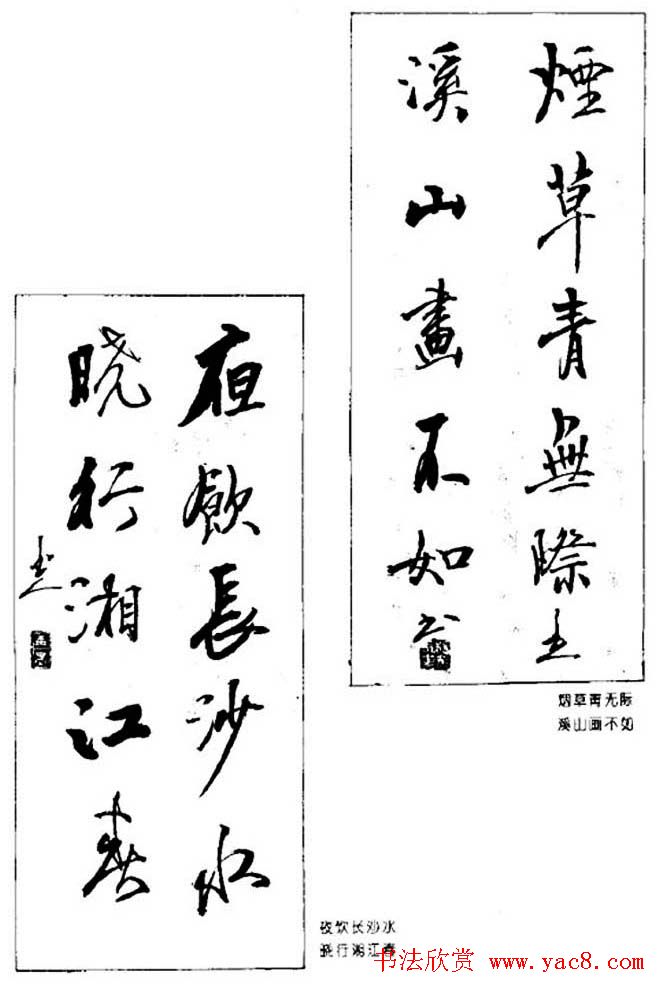 煙草青無際
溪山畫不如
烟草青无际
溪山画不如
夜飲長沙水
晓行湘江春
夜饮长沙水
晓行湘江春
书法欣赏 www.yac8.com